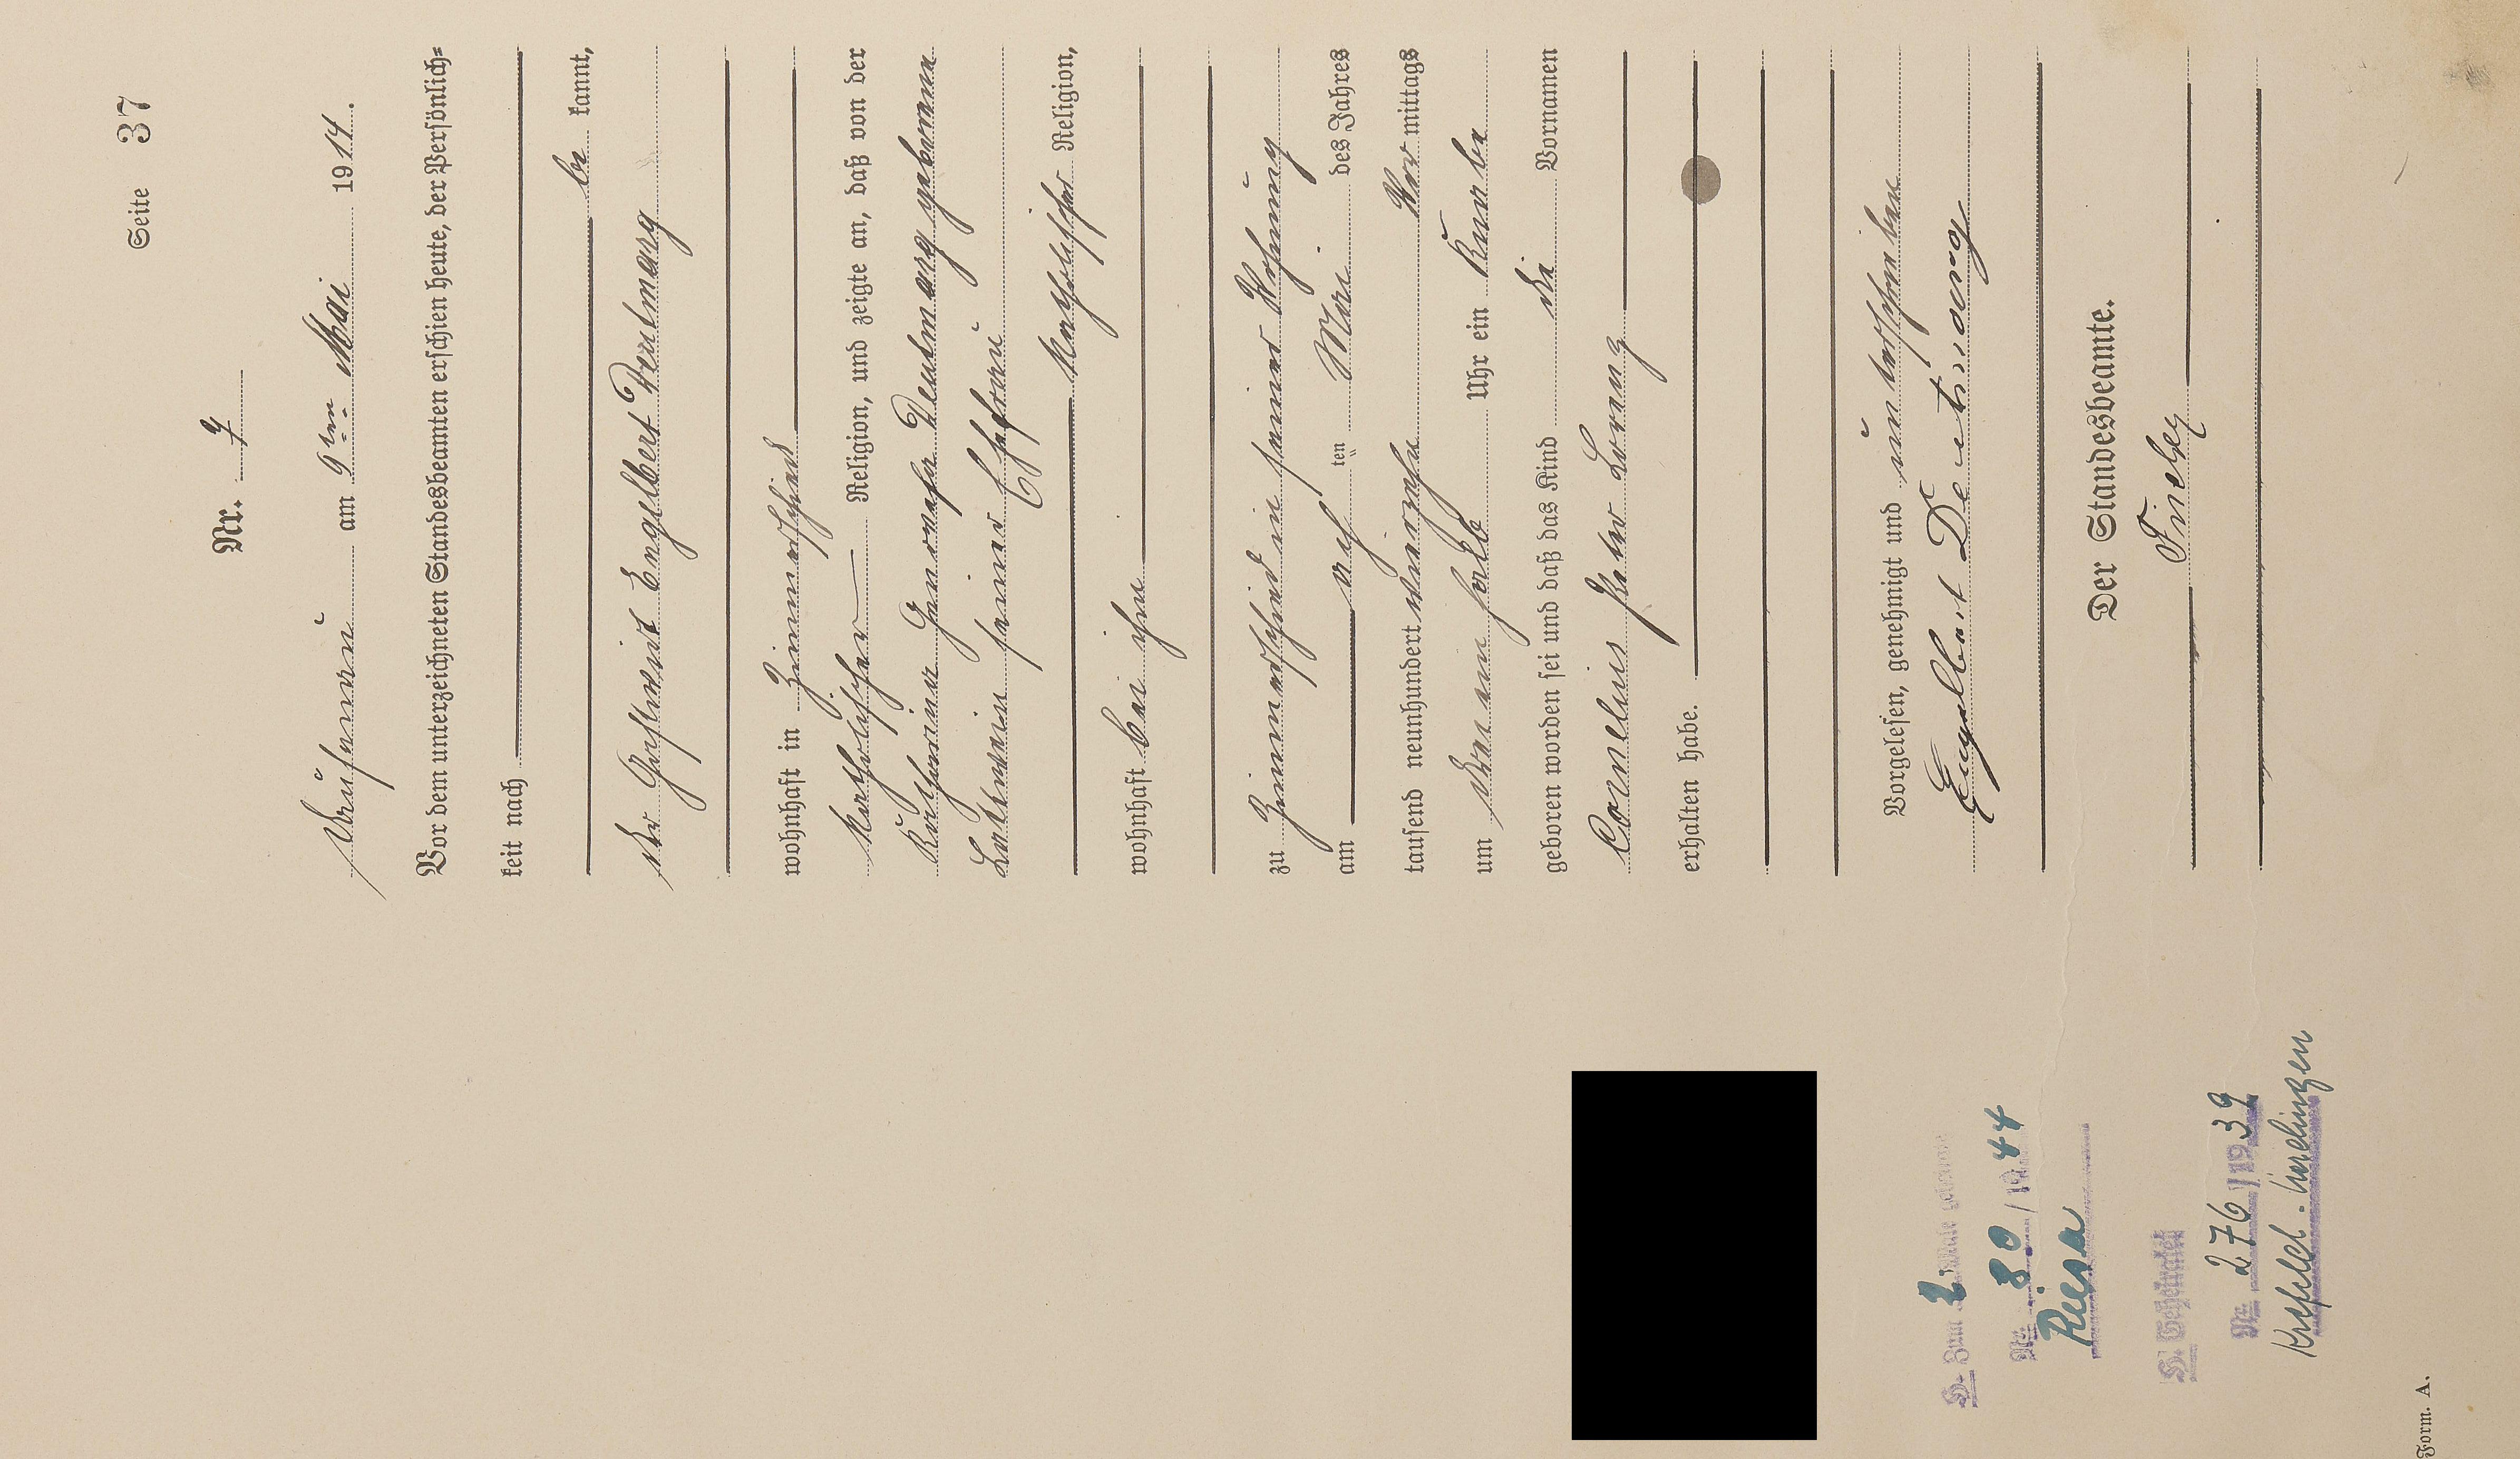 Seite 37
Nr. 7
am 9ten Mai 1914.
Vor dem unterzeichneten Standesbeamten erschien heute, der Persönlich-
keit nach
be kannt,
der Gastwirt Engelbert Deutmarg
wohnhaft in Zimmerschied
katholischer Religion, und zeigte an, daß von der
Katharina Genovefa Deutmarg geborene
Lottermann seiner Ehefrau
katholischer Religion,
wohnhaft bei ihm
zu Zimmerschied in seiner Wohnung
am acht ten Mai des Jahres
tausend neunhundert vierzehn Vor mittags
um drei ein halb Uhr ein Knabe
geboren worden sei und daß das Kind die Vornamen
Cornelius Peter Lorenz
erhalten habe.
Vorgelesen, genehmigt und unterschrieben
Engelbert Deutmarg
Der Standesbeamte.
H. Zum 2. Male
Nr. 80 / 1944
Riesa
H. Geheiratet
Nr. 276 / 1939
Krefeld-Uerdingen
Form. A.